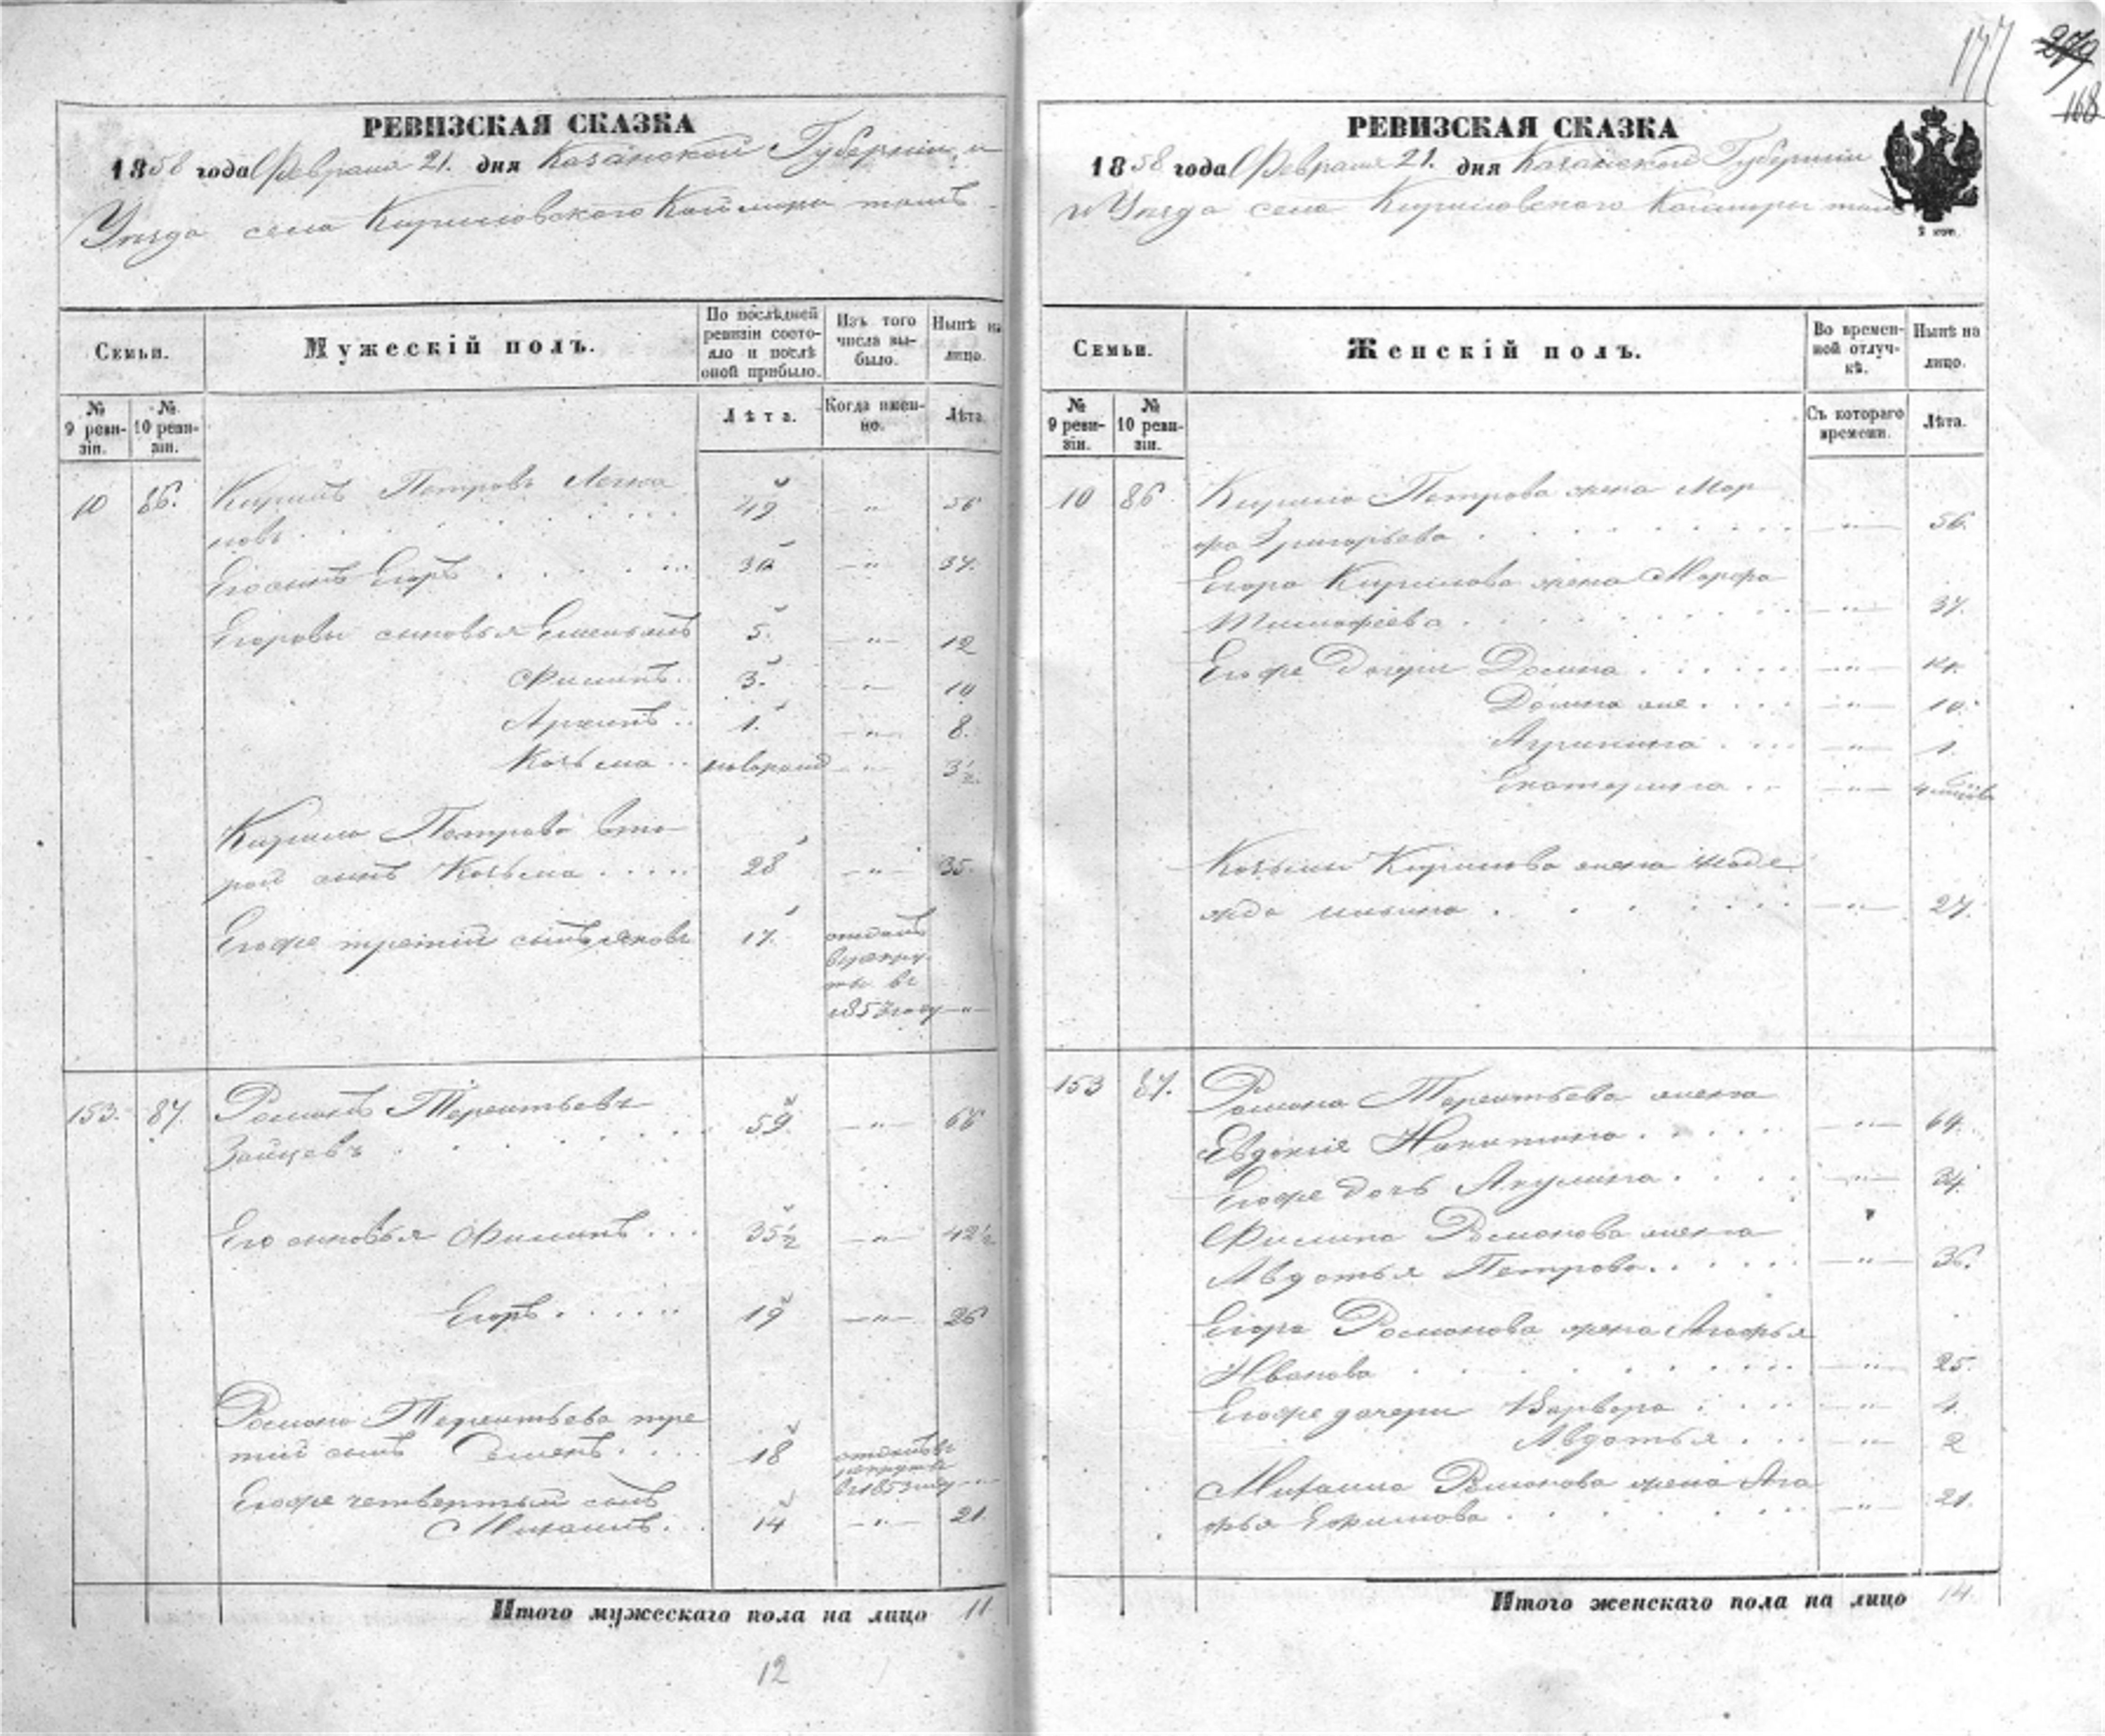 177
279
168
РЕВИЗСКАЯ СКАЗКА
1858 года Февраля 21. дня Казанской Губерніи и
Уѣзда села Кириловского Каймары тожъ
Семьи.
Мужескій полъ.
По послѣдней ревизіи состояло и послѣ оной прибыло.
Изъ того числа выбыло.
Нынѣ на лицо.
№ 9 ревизіи.
№ 10 ревизіи.
Лѣта.
Когда именно.
Лѣта.
10 86. Кирилъ Петровъ
новъ . 49 " 56
Его сынъ Егоръ . . . . 30 " 37.
Егоровы сыновья Емельянъ 5. " 12
Филипъ. 3. " 10
Архипъ . . 1. " 8.
Козьма . . новорожд " 3½.
Кирила Петрова вто
рой сынъ Козьма . . . . 28 " 35.
Егоже третій сынъ Яковъ 17. отданъ
в рекру
ты въ
1853 году "
153. 87. Романъ Терентьевъ
Зайцевъ . 59. " 66
Его сыновья Филипъ . . . 35½ " 42½
Егоръ . . . . . 19 " 26
Романа Терентьева тре
тий сынъ Семенъ . . . 18 отданъ въ
рекруты
въ 1853 году "
Егоже четвертый сынъ
Михаилъ . . . 14 " 21.
Итого мужескаго пола на лицо 11
12
РЕВИЗСКАЯ СКАЗКА
1858 года Февраля 21. дня Казанской Губерніи
и Уѣзда села Кириловского Каймары тожъ
2 коп.
Семьи.
Женскій полъ.
Во временной отлучкѣ.
Нынѣ на лицо.
№ 9 ревизіи.
№ 10 ревизіи.
Съ котораго времени.
Лѣта.
10 86 Кирила Петрова жена Мар
фа Григорьева . " 56.
Егора Кирилова жена Марфа
Тимофѣева . " 37.
Егоже дочери Домна . . . . "
Домна же . . . . " 10.
Акулина . . . " 1.
Екатерина . . "
Козьмы Кирилова жена Наде
жда Ильина . " 27.
153 87. Романа Терентьева жена
Евдокія Никитина . . . . . " 64.
Егоже дочь Акулина . . . . " 34.
Филипа Романова жена
Авдотья Петрова . . . . . " 36.
Егора Романова жена Агафья
Иванова . " 25.
Егоже дочери Варвара . . . . " 4.
Авдотья . . . " 2
Михаила Романова жена Ага
фья Ефимова . " 21.
Итого женскаго пола на лицо 14.